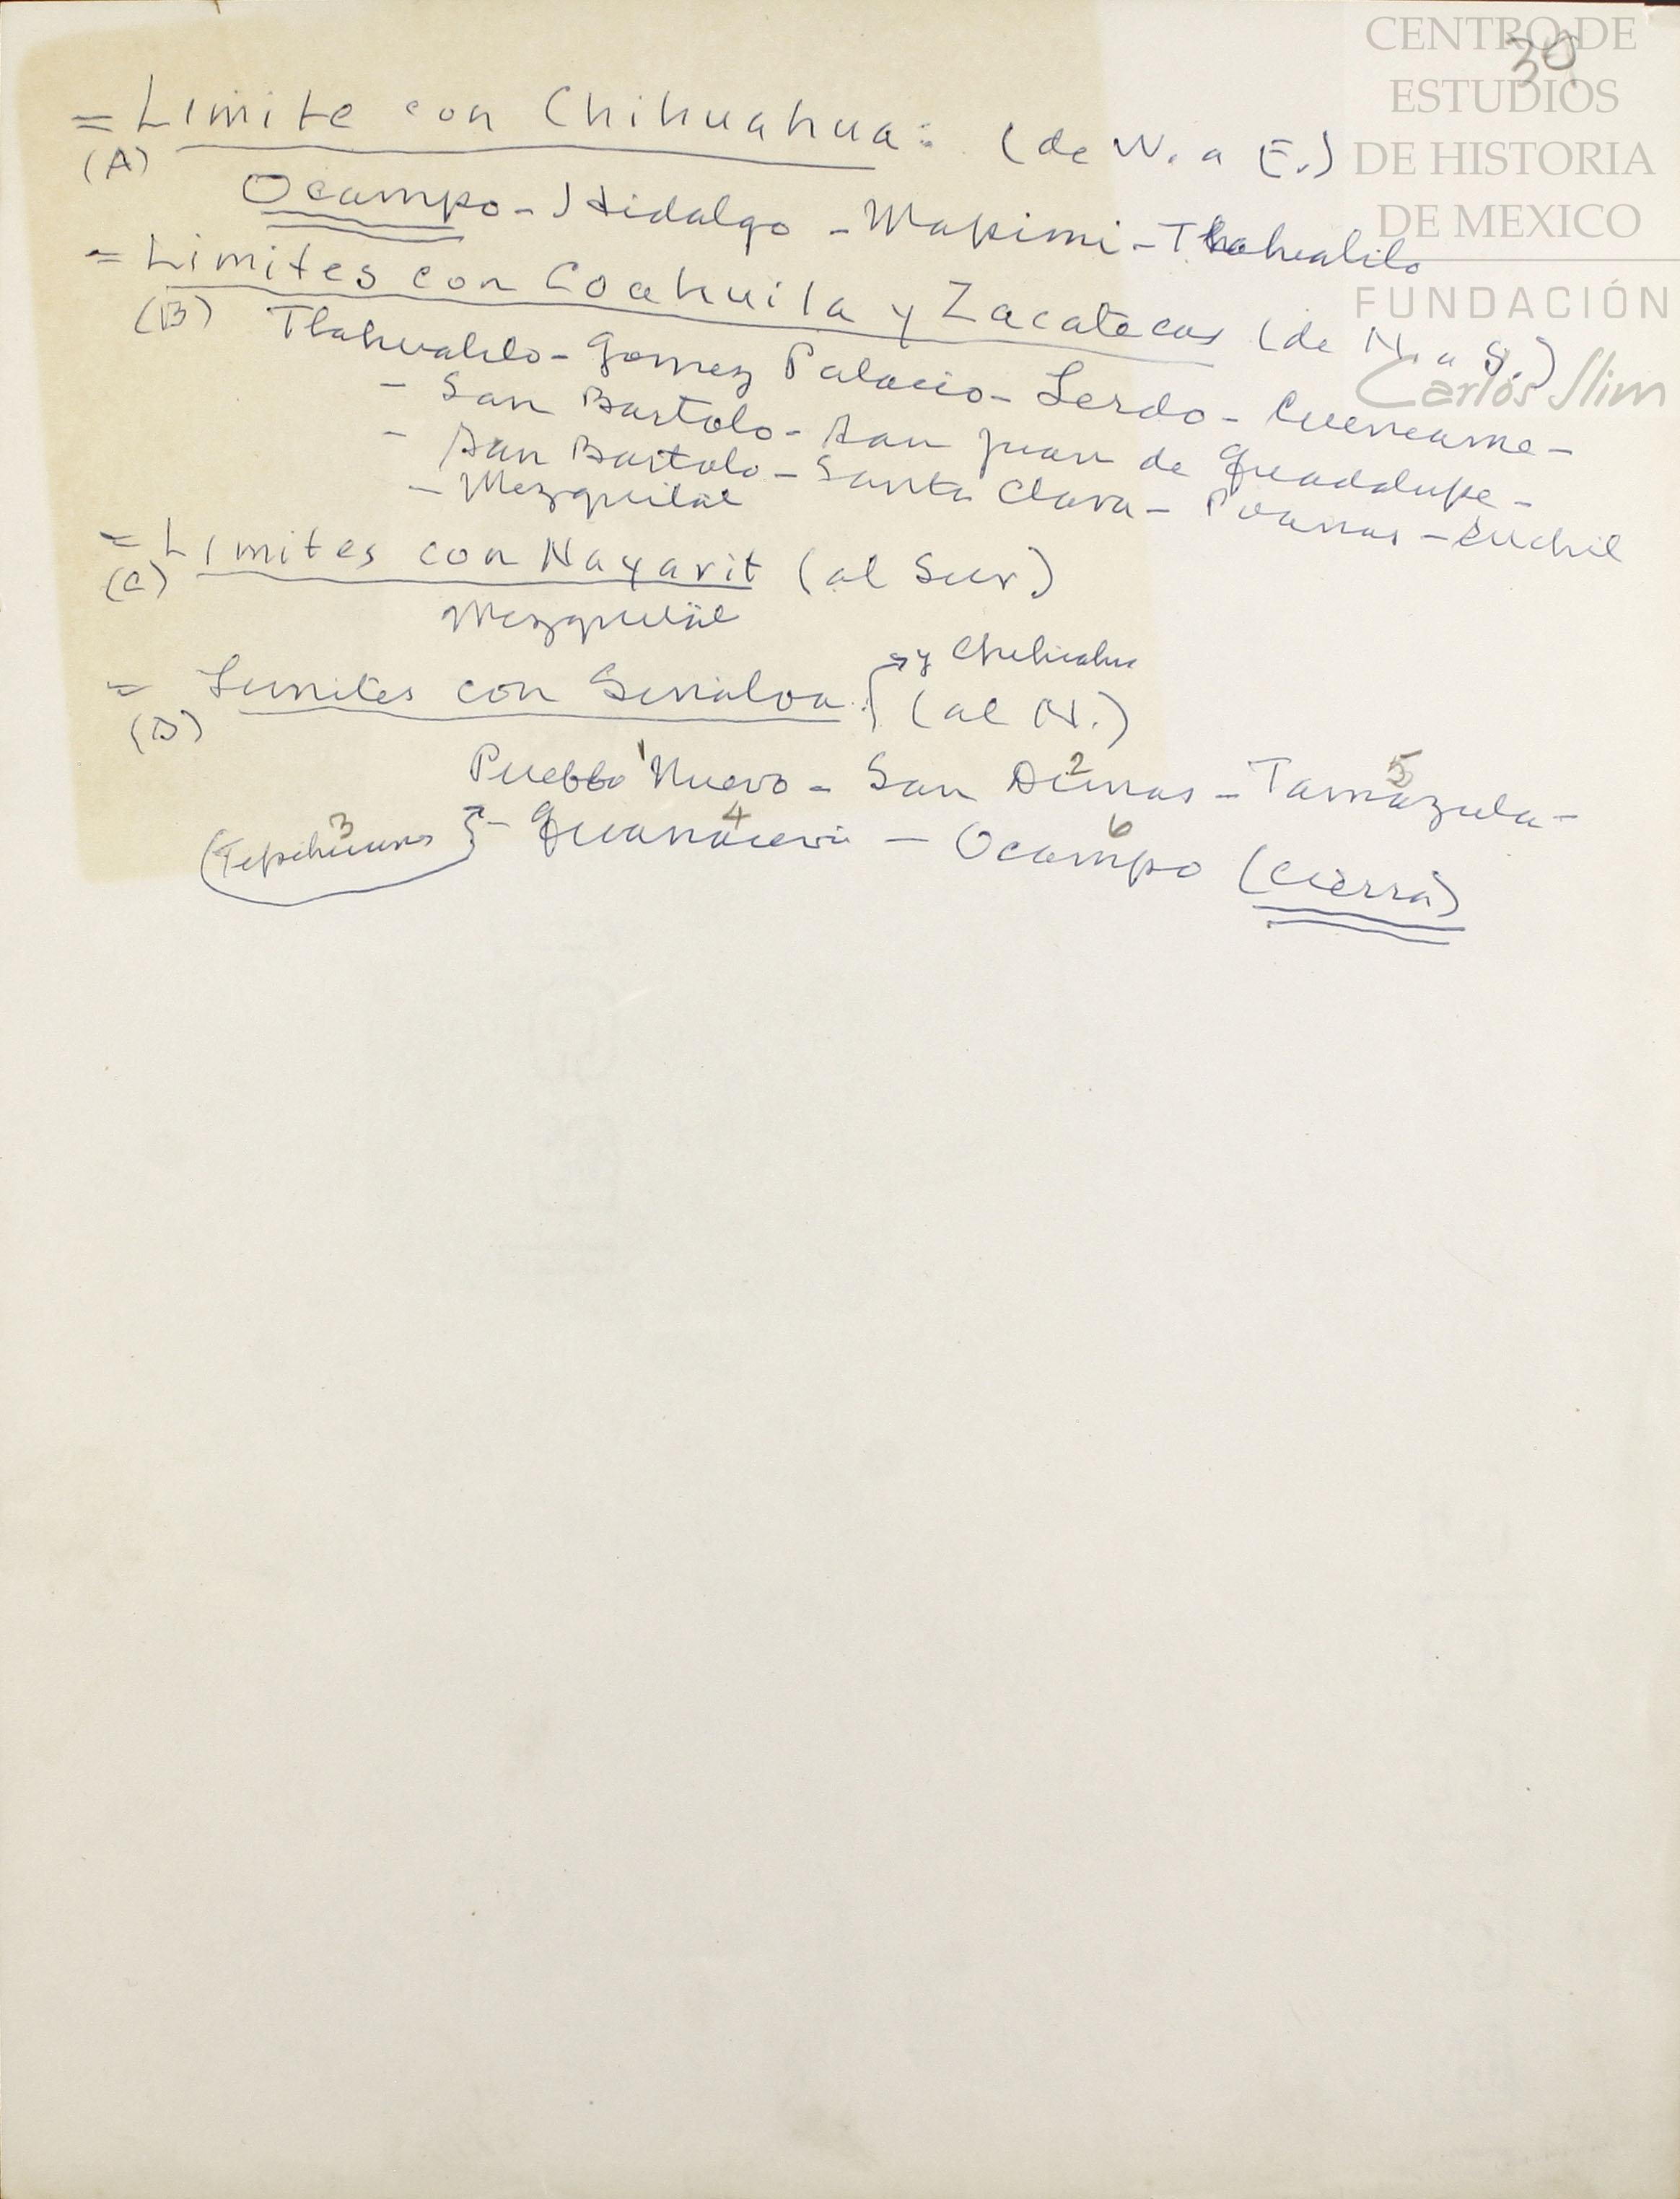 CENTRO DE
ESTUDIOS
DE HISTORIA
DE MEXICO
FUNDACIÓN
Carlos Slim
39
= Limite con Chihuahua: (de W. a E.)
(A)
Ocampo - Hidalgo - Mapimi - Tlahualilo
= Limites con Coahuila y Zacatecas (de N. a S.)
(B) Tlahualilo - Gomez Palacio - Lerdo - Cuencame -
- San Bartolo - San Juan de Guadalupe -
- San Bartolo - Santa Clara - Poanas - Suchil
- Mezquital
= Limites con Nayarit (al Sur)
(C)
Mezquital
y Chihuahua
= Limites con Sinaloa (al N.)
(D)
1 2 5
Pueblo Nuevo - San Dimas - Tamazula -
3 4 6
(Tepehuanes } - Guanacevi - Ocampo (cierra)